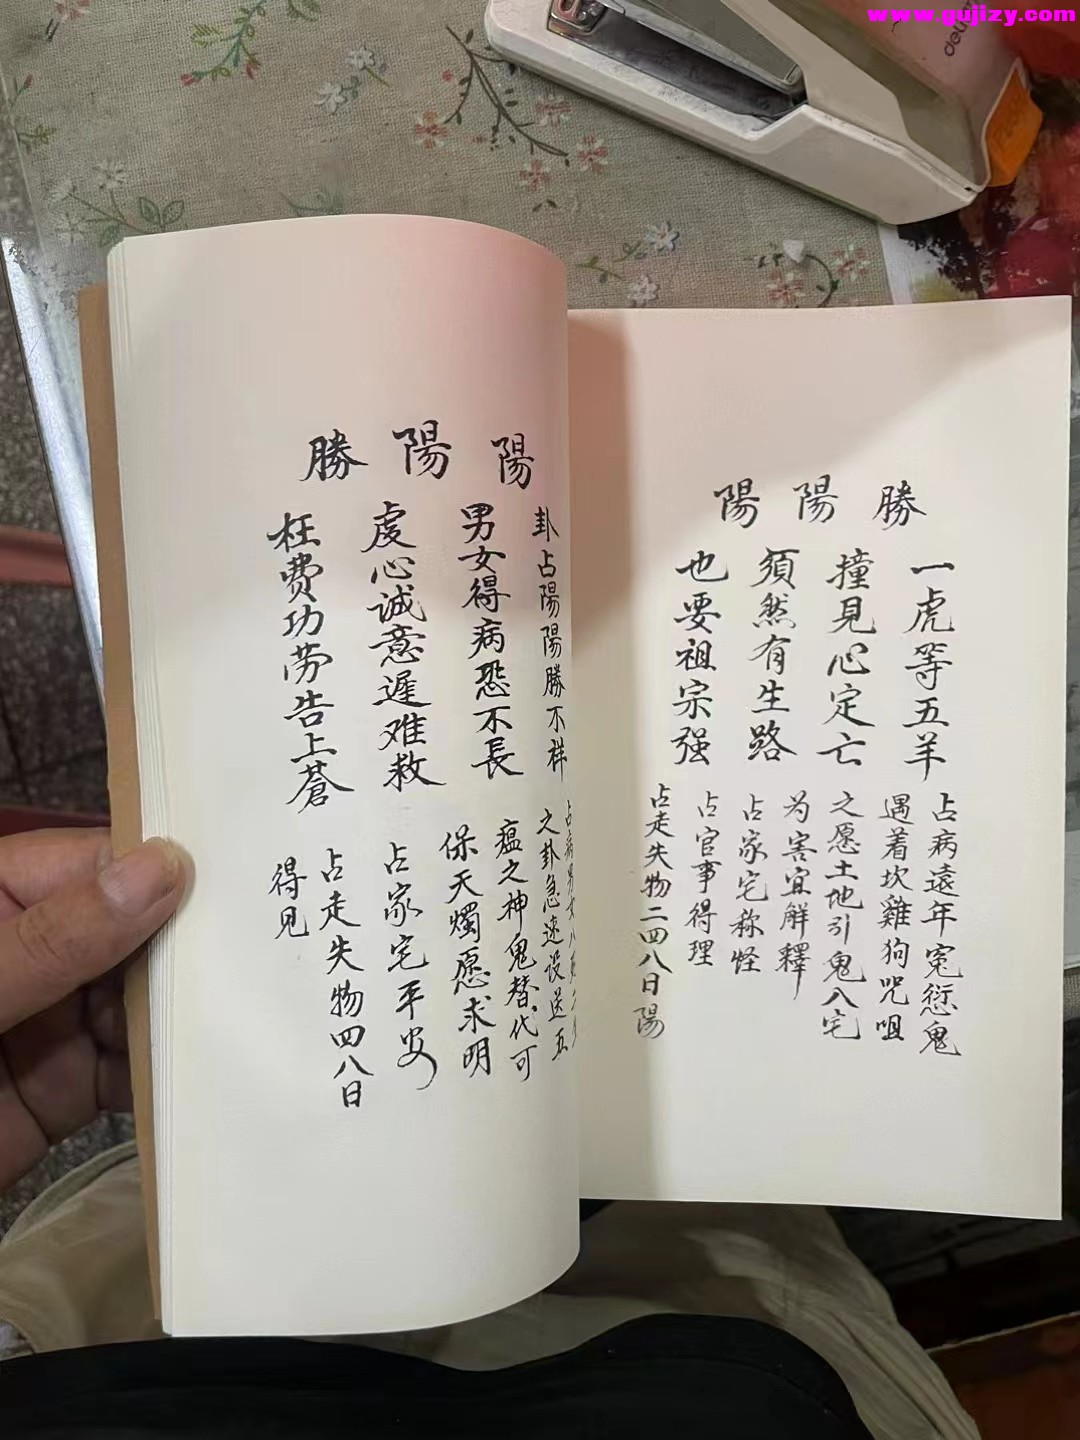 www.gujizy.com
deli
勝陽陽
一虎等五羊
撞見心定亡
須然有生路
也要祖宗强
占病遠年冤愆鬼
遇着坎雞狗咒咀
之愿土地引鬼八宅
为害宜解釋
占家宅称怪
占官事得理
占走失物二四八日陽
陽陽勝
卦占陽陽勝不祥
男女得病恐不長
虔心诚意遲难救
枉费功劳告上蒼
占病男女八死
之卦急速设送五
瘟之神鬼替代可
保天燭愿求明
占家宅平安
占走失物四八日
得见